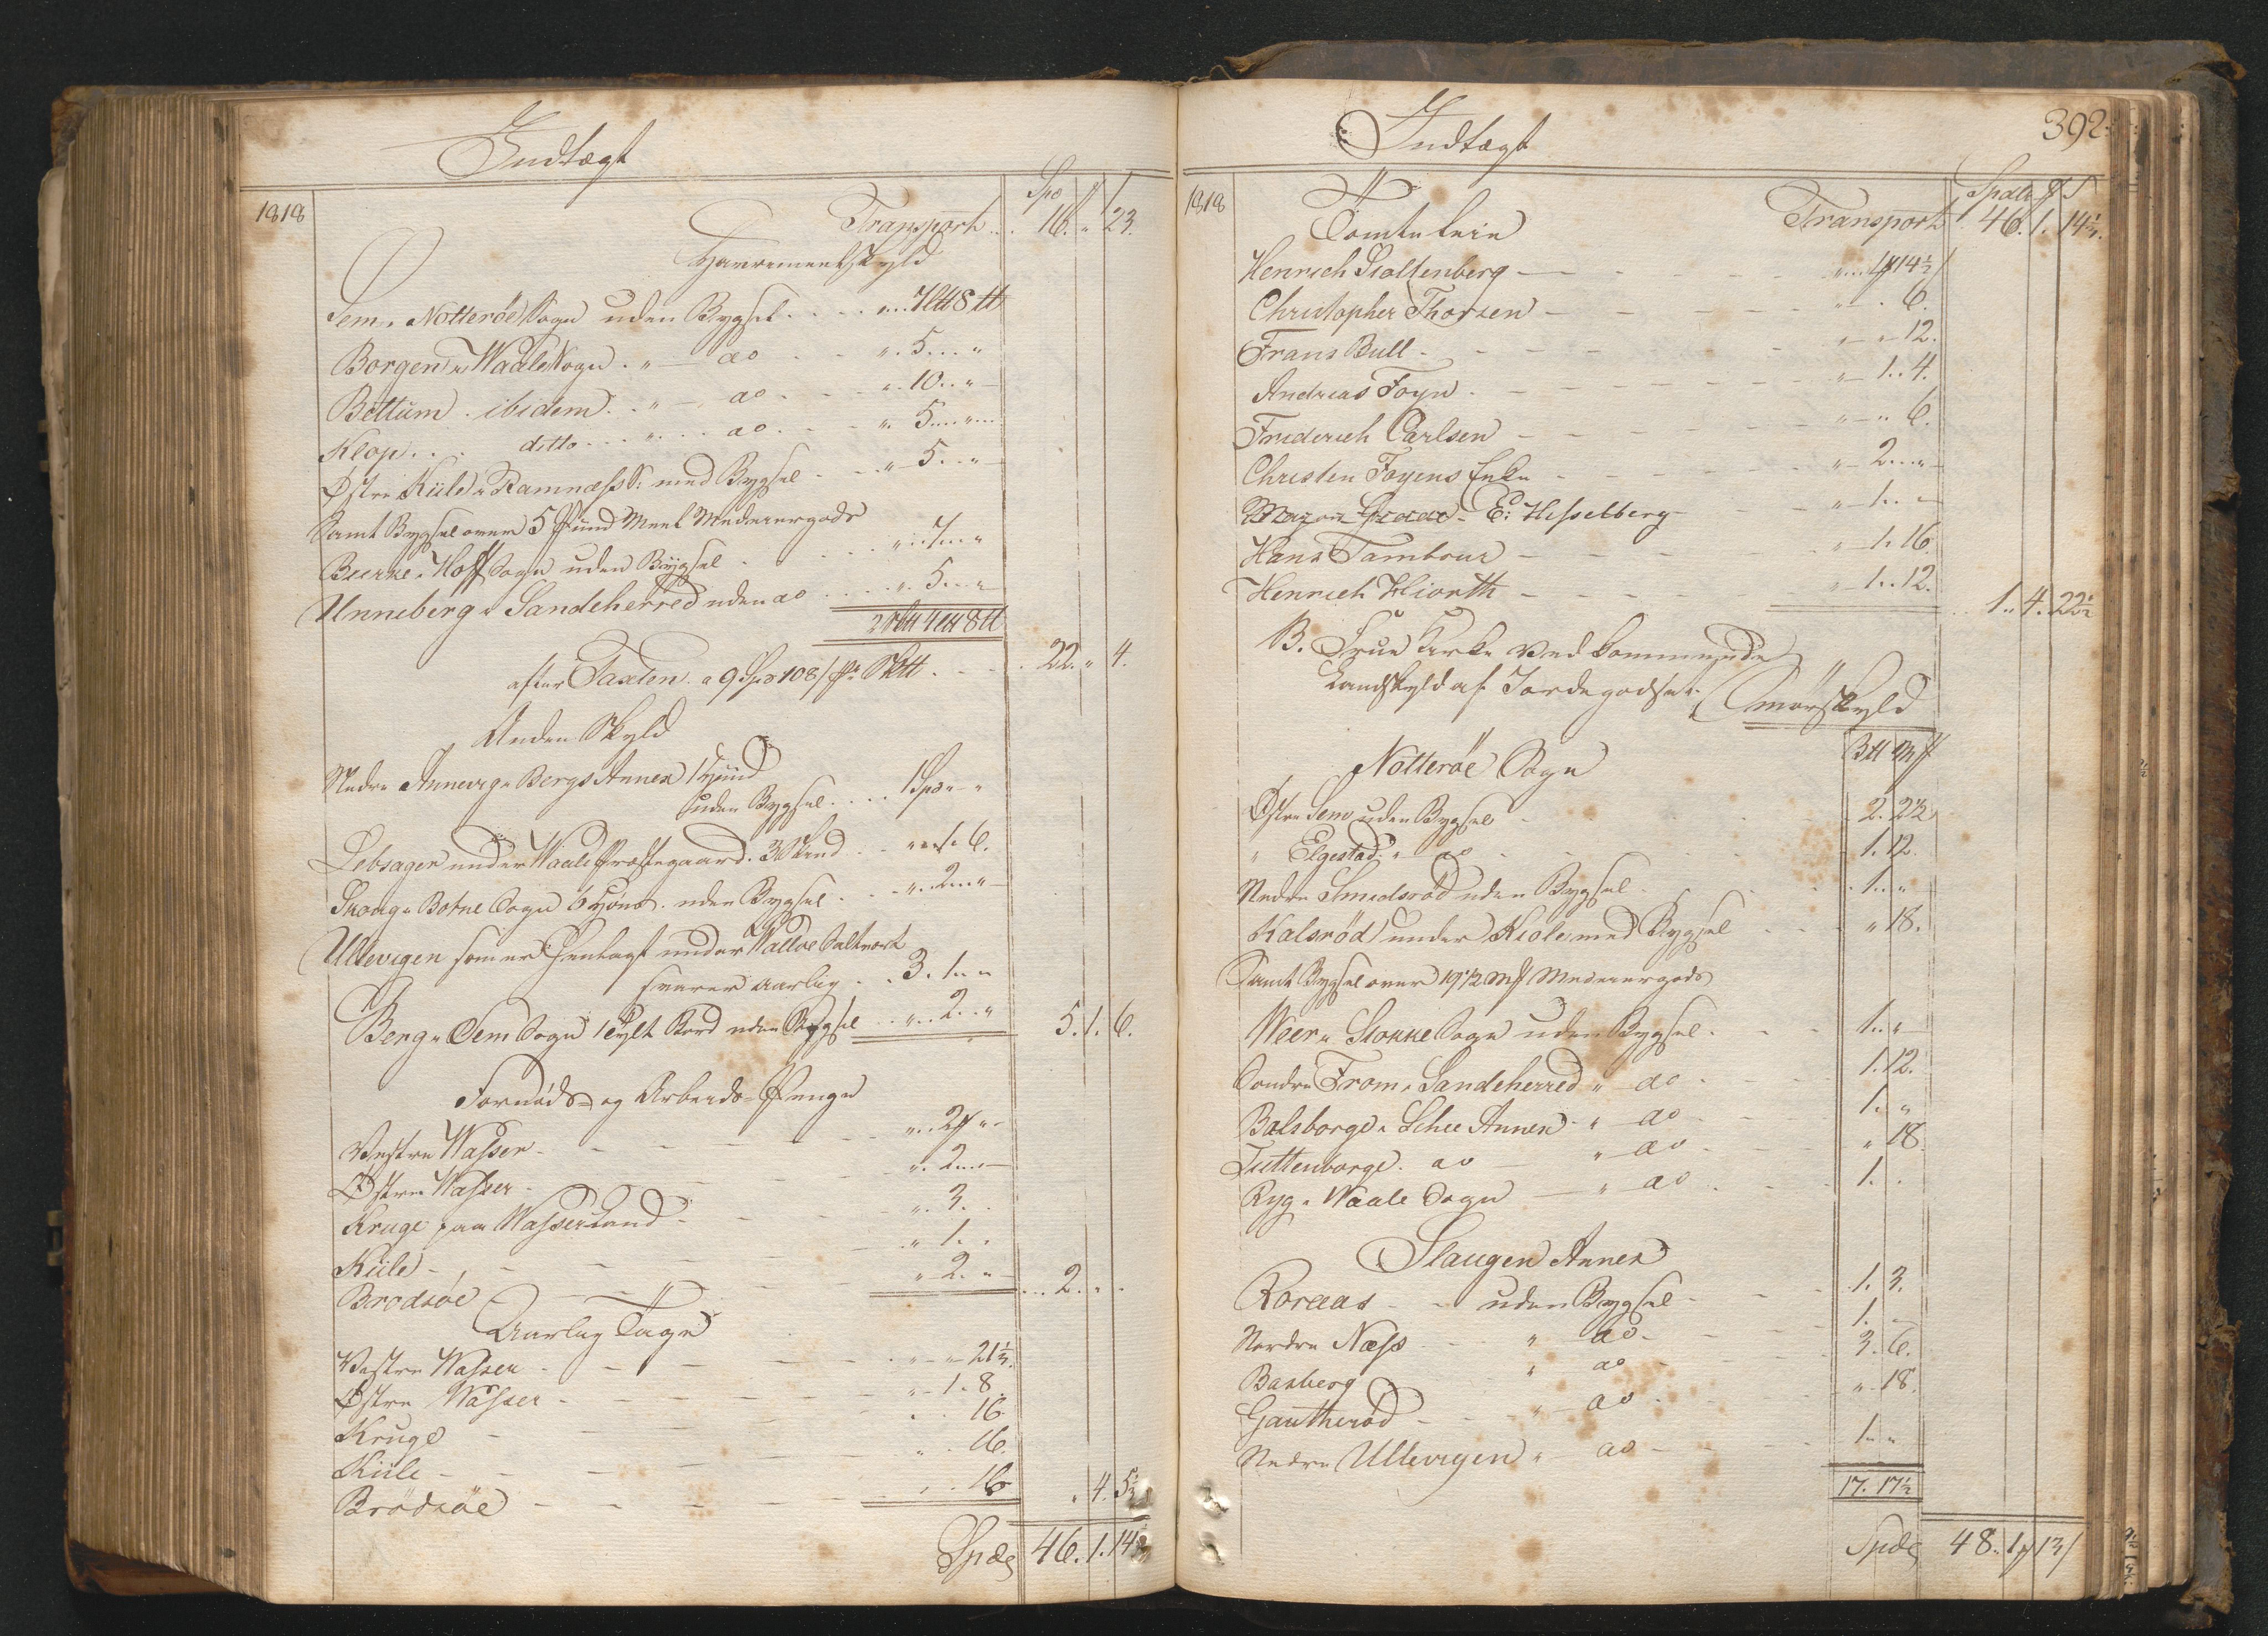 Indtægt
Spd
1818
Transport . . 16. " 23.
Havremeelskyld
Sem i Nötteröe Sogn uden Bygsel . . . . " . . .
Borgen i Waale Sogn . " — do . . — " . 5 . . . "
Bettum . ibidem . . " — do . — — " . 10 . . "
Klop . . . ditto . . . " . . . do . — — " . 5 . . . "
Østre Kiile i Ramnæss S: med Bygsel — . . " 5 . . . "
Samt Bygsel over 5 Pund Meel Medeiergods
Bierke i Hoff Sogn uden Bygsel . . . . "
Unneberg i Sandeherred uden do . . . . . " . 5 . . . "
efter Taxten . a 9 Spd 108 s pr. . . . 22. " 4.
Anden Skyld
Nedre Annevig i Bergs Annex 1 Huud
uden Bygsel . . . . 1 Spd " "
Lebsager under Waale Præstegaard. 3 Skind . . " 1. 6.
Skoug i Botne Sogn 6 Höns . uden Bygsel . . . " . 2 . . "
Ullevigen som er henlagt under Walløe Saltverk
svarer aarlig . . 3. 1. "
Berg i Sem Sogn 1 Tylt Bord uden Bygsel . . " . 2 . . " 5. 1. 6.
Fornöds- og Arbeids-Penge
Vestre Wasser — — — — — " . 2 " "
Østre Wasser — — — — — " . 2 . . "
Kruge paa Wasserland — — — " . 3. .
Kiile — — — — — " 1. .
Brodsöe — — — — " 2. " . . . 2. " .
Aarlig Tage
Vestre Wasser — — — — — " — " 21½.
Østre Wasser — — — — " — 1. 8.
Kruge — — — — — . . 16.
Kiile — — — — — " . 16.
Brödsöe — — — — — . . 16 " 4. 5½
Spd 46. 1. 14½
Indtægt
392.
Spdlr
1818
Transport 46. 1. 14½.
Tomteleie
Henrich Stoltenberg — — — — " . . 1. 14½
Christopher Thorsen — — — — — " — . 6.
Frans Bull — — — — — " — " 12.
Andreas Foyn — — — — — " — 1. . 4.
Friderich Carlsen — — — — — " — " 6.
Christen Foyens Enke — — — — " — 2 . . . "
E: Hesselberg — — — " — 1. . "
Hans Tambour — — — — " 1. 16.
Henrich Hiorth — — — — " 1. . 12. . . 1. 4. 22½
B. Frue Kirke vedkommende
Landskyld af Jordegodset.
Smörskyld
Nötteröe Sogn
Østre Sem uden Bygsel . . . 2. 23½
" Elgestad " do . . . 1. 12.
Nedre Smidsröd uden Bygsel . . . 1. . "
Kalsröd under Kiole med Bygsel . . . " 18.
Samt Bygsel over 19½ Medeiergods
Weer i Stokke Sogn uden Bygsel . . . 1. . "
Söndre From i Sandeherred " do . . . 1. 12.
Bolsborge i Schee Annex " do . . . 1. . "
Tuttenborge . do — " do . . . " 18.
Ryg i Waale Sogn — " do . . . 1. .
Slaugen Annex
Roraas — — uden Bygsel — — 1. 3.
Nordre Næss — — " do — — 1. —
Basberg — — " do — — 3. 6.
Gautheröd — — " do — — " 18.
Nedre Ullevigen " do — — 1. . "
17. 17½
Spd 48. 1. 13